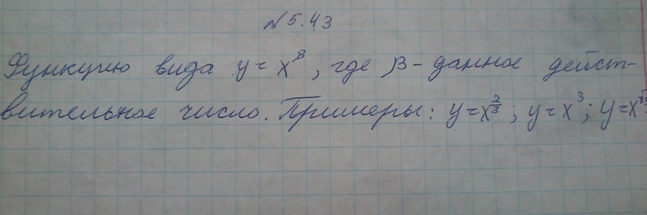 №5.43
Функцию вида y = x^β, где β - данное дейст-
вительное число. Примеры: y = x^(2/3); y = x^3; y = x